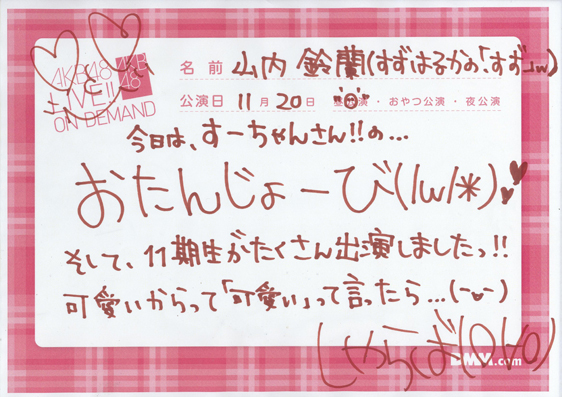 AKB48
LIVE!!
ON DEMAND
AKB
48
名前 山内 鈴蘭(すずはるかの「すず」w)
公演日 11月20日 昼公演・おやつ公演・夜公演
今日は、すーちゃんさん!!の…
おたんじょーび(/ω/*)
そして、11期生がたくさん出演しましたっ!!
可愛いからって「可愛い」って言ったら…(-ω-)
しゃらくば(OΔO)
DMM.com